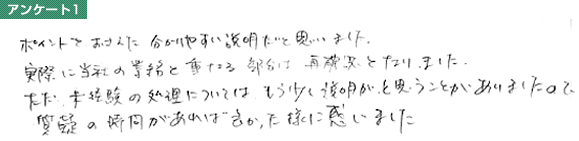 アンケート1
ポイントをおさえた 分かりやすい説明だと思いました。
実際に当社の業務と重なる部分は 再確認となりました。
ただ、未経験の処理については、もう少し説明が、と思うことがありましたので
質疑の時間があれば良かった様に感じました